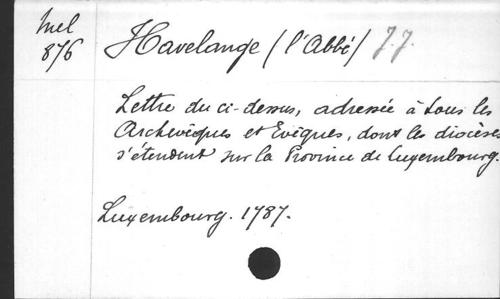 Mel
876
Havelange (l'Abbé) J.J.
Lettre du ci-dessus, adressée à tous les
Archevêques et Evêques, dont les diocèses
s'étendent sur la Province de Luxembourg.
Luxembourg. 1787.